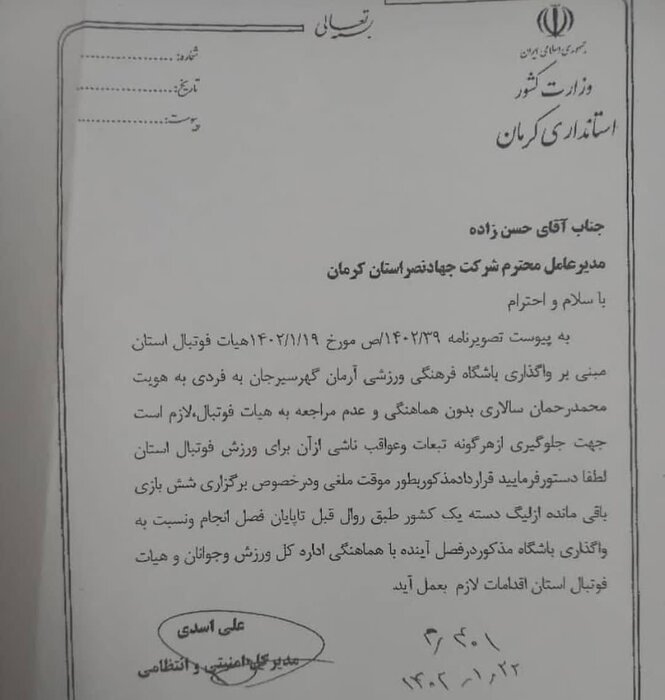 بسمه تعالی
جمهوری اسلامی ایران
وزارت کشور
استانداری کرمان
شماره:
تاریخ:
پیوست:
جناب آقای حسن زاده
مدیرعامل محترم شرکت جهادنصراستان کرمان
با سلام و احترام
به پیوست تصویرنامه ۱۴۰۲/۳۹/ص مورخ ۱۴۰۲/۱/۱۹هیات فوتبال استان
مبنی بر واگذاری باشگاه فرهنگی ورزشی آرمان گهرسیرجان به فردی به هویت
محمدرحمان سالاری بدون هماهنگی و عدم مراجعه به هیات فوتبال،لازم است
جهت جلوگیری ازهرگونه تبعات وعواقب ناشی ازآن برای ورزش فوتبال استان
لطفا دستورفرمایید قراردادمذکوربطور موقت ملغی ودرخصوص برگزاری شش بازی
باقی مانده ازلیگ دسته یک کشور طبق روال قبل تاپایان فصل انجام ونسبت به
واگذاری باشگاه مذکوردرفصل آینده با هماهنگی اداره کل ورزش وجوانان و هیات
فوتبال استان اقدامات لازم بعمل آید.
علی اسدی
مدیرکل امنیتی و انتظامی
۱۴۰۲/۱/۲۲